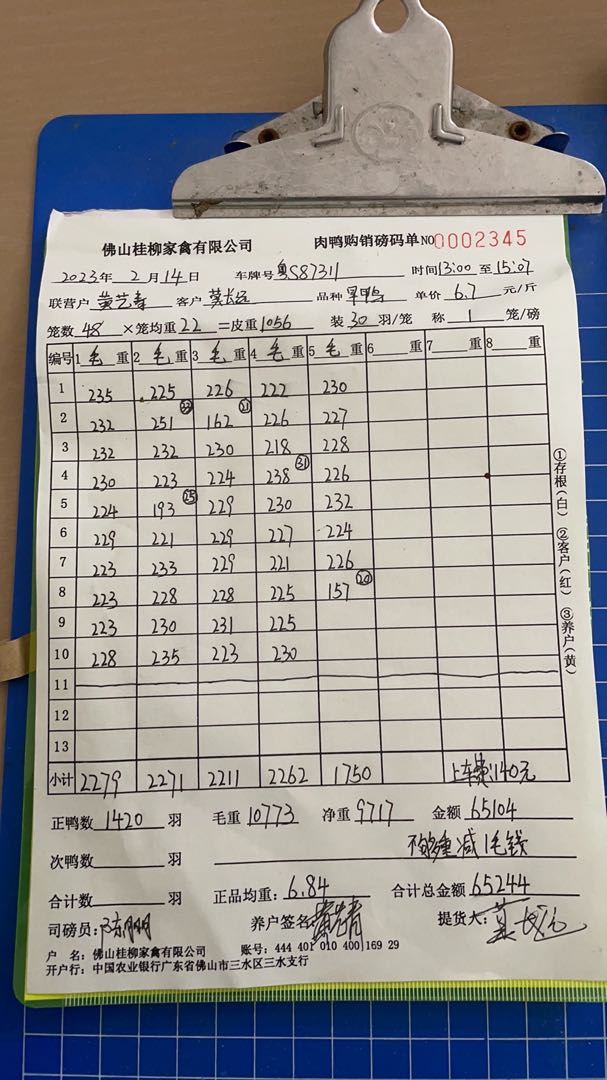 佛山桂柳家禽有限公司 肉鸭购销磅码单 NO 0002345
2023年 2月14日 车牌号 粤S87311 时间13:00 至 15:07
联营户 黄艺青 客户 莫长远 品种 旱鸭 单价 6.7 元/斤
笼数 48 ×笼均重 22 =皮重 1056 装 30 羽/笼 称 1 笼/磅
编号 1 毛 重 2 毛 重 3 毛 重 4 毛 重 5 毛 重 6 重 7 重 8 重
1 235 225 226 222 230
2 232 251 ㉝ 162 ㉑ 226 227
3 232 232 230 218 228
4 230 223 224 238 ㉛ 226
5 224 193 ㉕ 229 230 232
6 229 221 229 227 224
7 223 233 229 221 226
8 223 228 228 225 157 ⑳
9 223 230 231 225
10 228 235 223 230
11
12
13
小计 2279 2271 2211 2262 1750 上车费:140元
正鸭数 1420 羽 毛重 10773 净重 9717 金额 65104
次鸭数 羽 不够重减1毛钱
合计数 羽 正品均重: 6.84 合计总金额 65244
司磅员: 养户签名: 提货人:
户 名: 佛山桂柳家禽有限公司 账号: 444 401 010 400 169 29
开户行: 中国农业银行广东省佛山市三水区三水支行
①存根(白) ②客户(红) ③养户(黄)